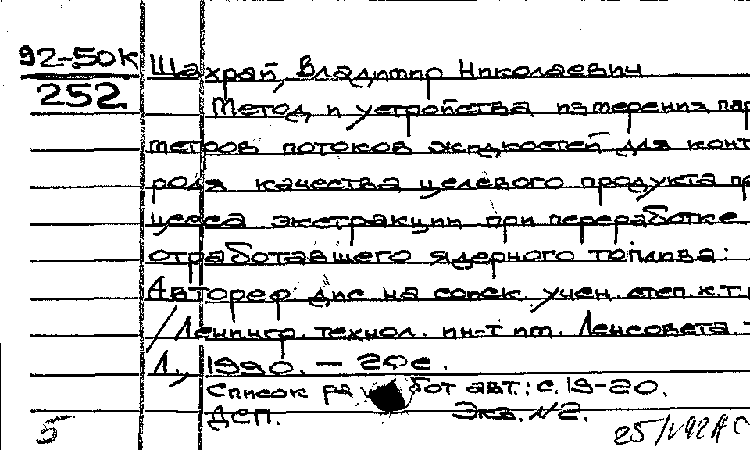 92-50К
252
Шахрай, Владимир Николаевич
Метод и устройства измерения пар
метров потоков жидкостей для конт
роля качества целевого продукта пр
цесса экстракции при переработке
отработавшего ядерного топлива:
Автореф. дис на соиск. учен. степ к.т.
/Ленингр. технол. ин-т им. Ленсовета.
Л., 1990. — 20с.
Список работ авт.: с.19-20.
ДСП. Экз. №2.
5